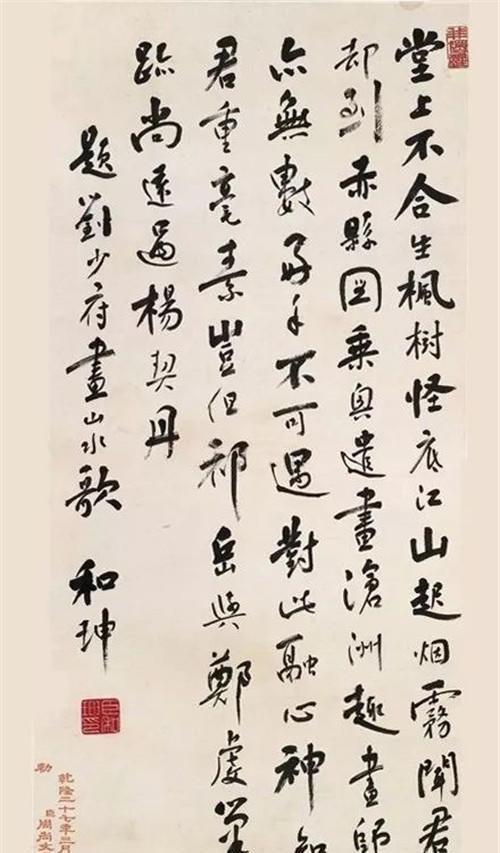 堂上不合生楓树怪底江山起烟霧聞君
却到赤縣図乘興遣畫滄洲趣畫師
亦無數好手不可遇對此融心神知
君重毫素豈但祁岳與鄭虔筆
跡尚遠過楊契丹
題劉少府畫山水歌 和珅
乾隆二十七年三月
臣周尚文
勒